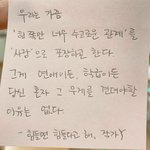 우리는 가끔
'한쪽만 너무 수고로운 관계'를
'사랑'으로 포장하곤 한다
그게 연애이든, 학업이든
당신 혼자 그 무게를 견뎌야할
이유는 없다.
- 힘들면 힘들다고 해, 작가